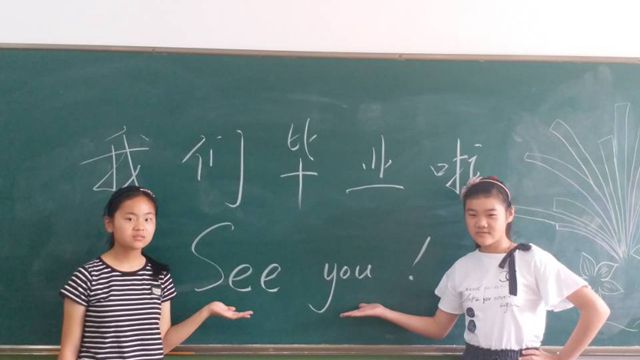 我们毕业啦
See you!